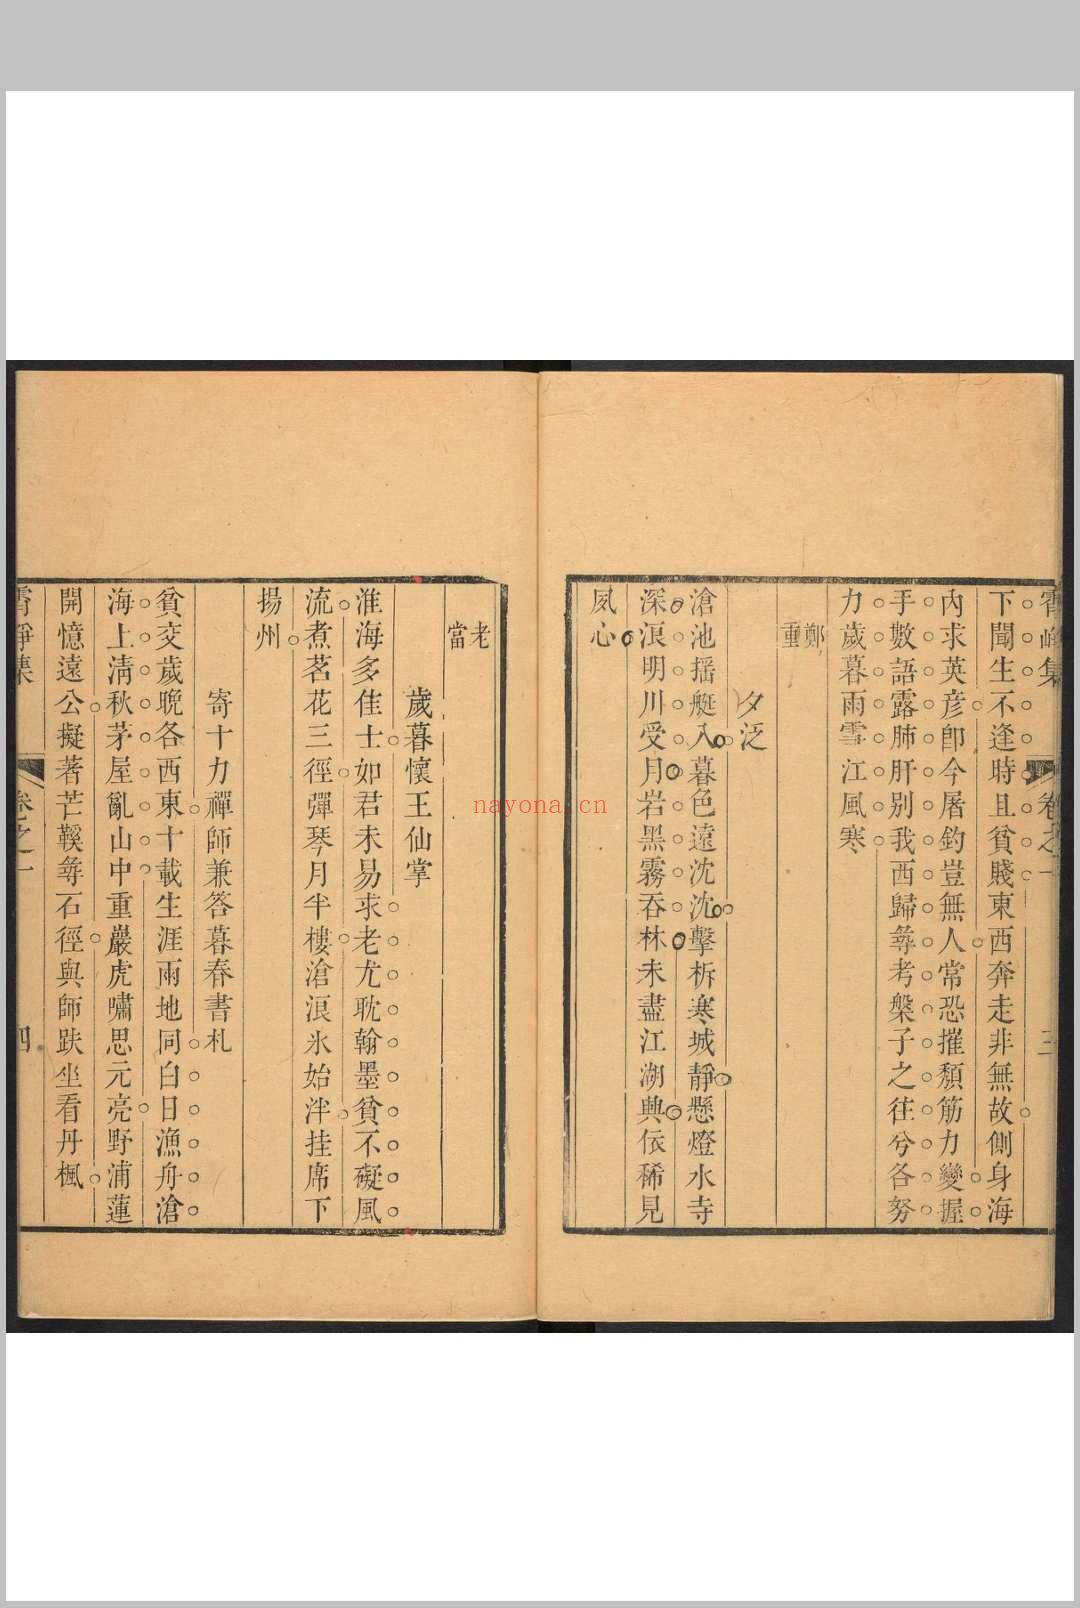 下聞生不逢時且貧賤東西奔走非無故側身海
內求英彦卽今屠釣豈無人常恐摧頹筋力變握
手數語露肺肝別我西歸尋考槃子之往兮各努
力歲暮雨雪江風寒
鄭
重
夕泛
滄池揺艇入暮色遠沈沈擊柝寒城靜懸燈水寺
深浪明川受月岩黑霧吞林未盡江湖興依稀見
夙心
老
當
歲暮懷王仙掌
淮海多佳士如君未易求老尤耽翰墨貧不礙風
流煮茗花三徑彈琴月半樓滄浪氷始泮挂席下
揚州
寄十力禪師兼答暮春書札
貧交歲晩各西東十載生涯兩地同白日漁舟滄
海上淸秋茅屋亂山中重巖虎嘯思元亮野浦蓮
開憶遠公擬著芒鞵尋石徑與師趺坐看丹楓
卷之一
四
nayona.cn